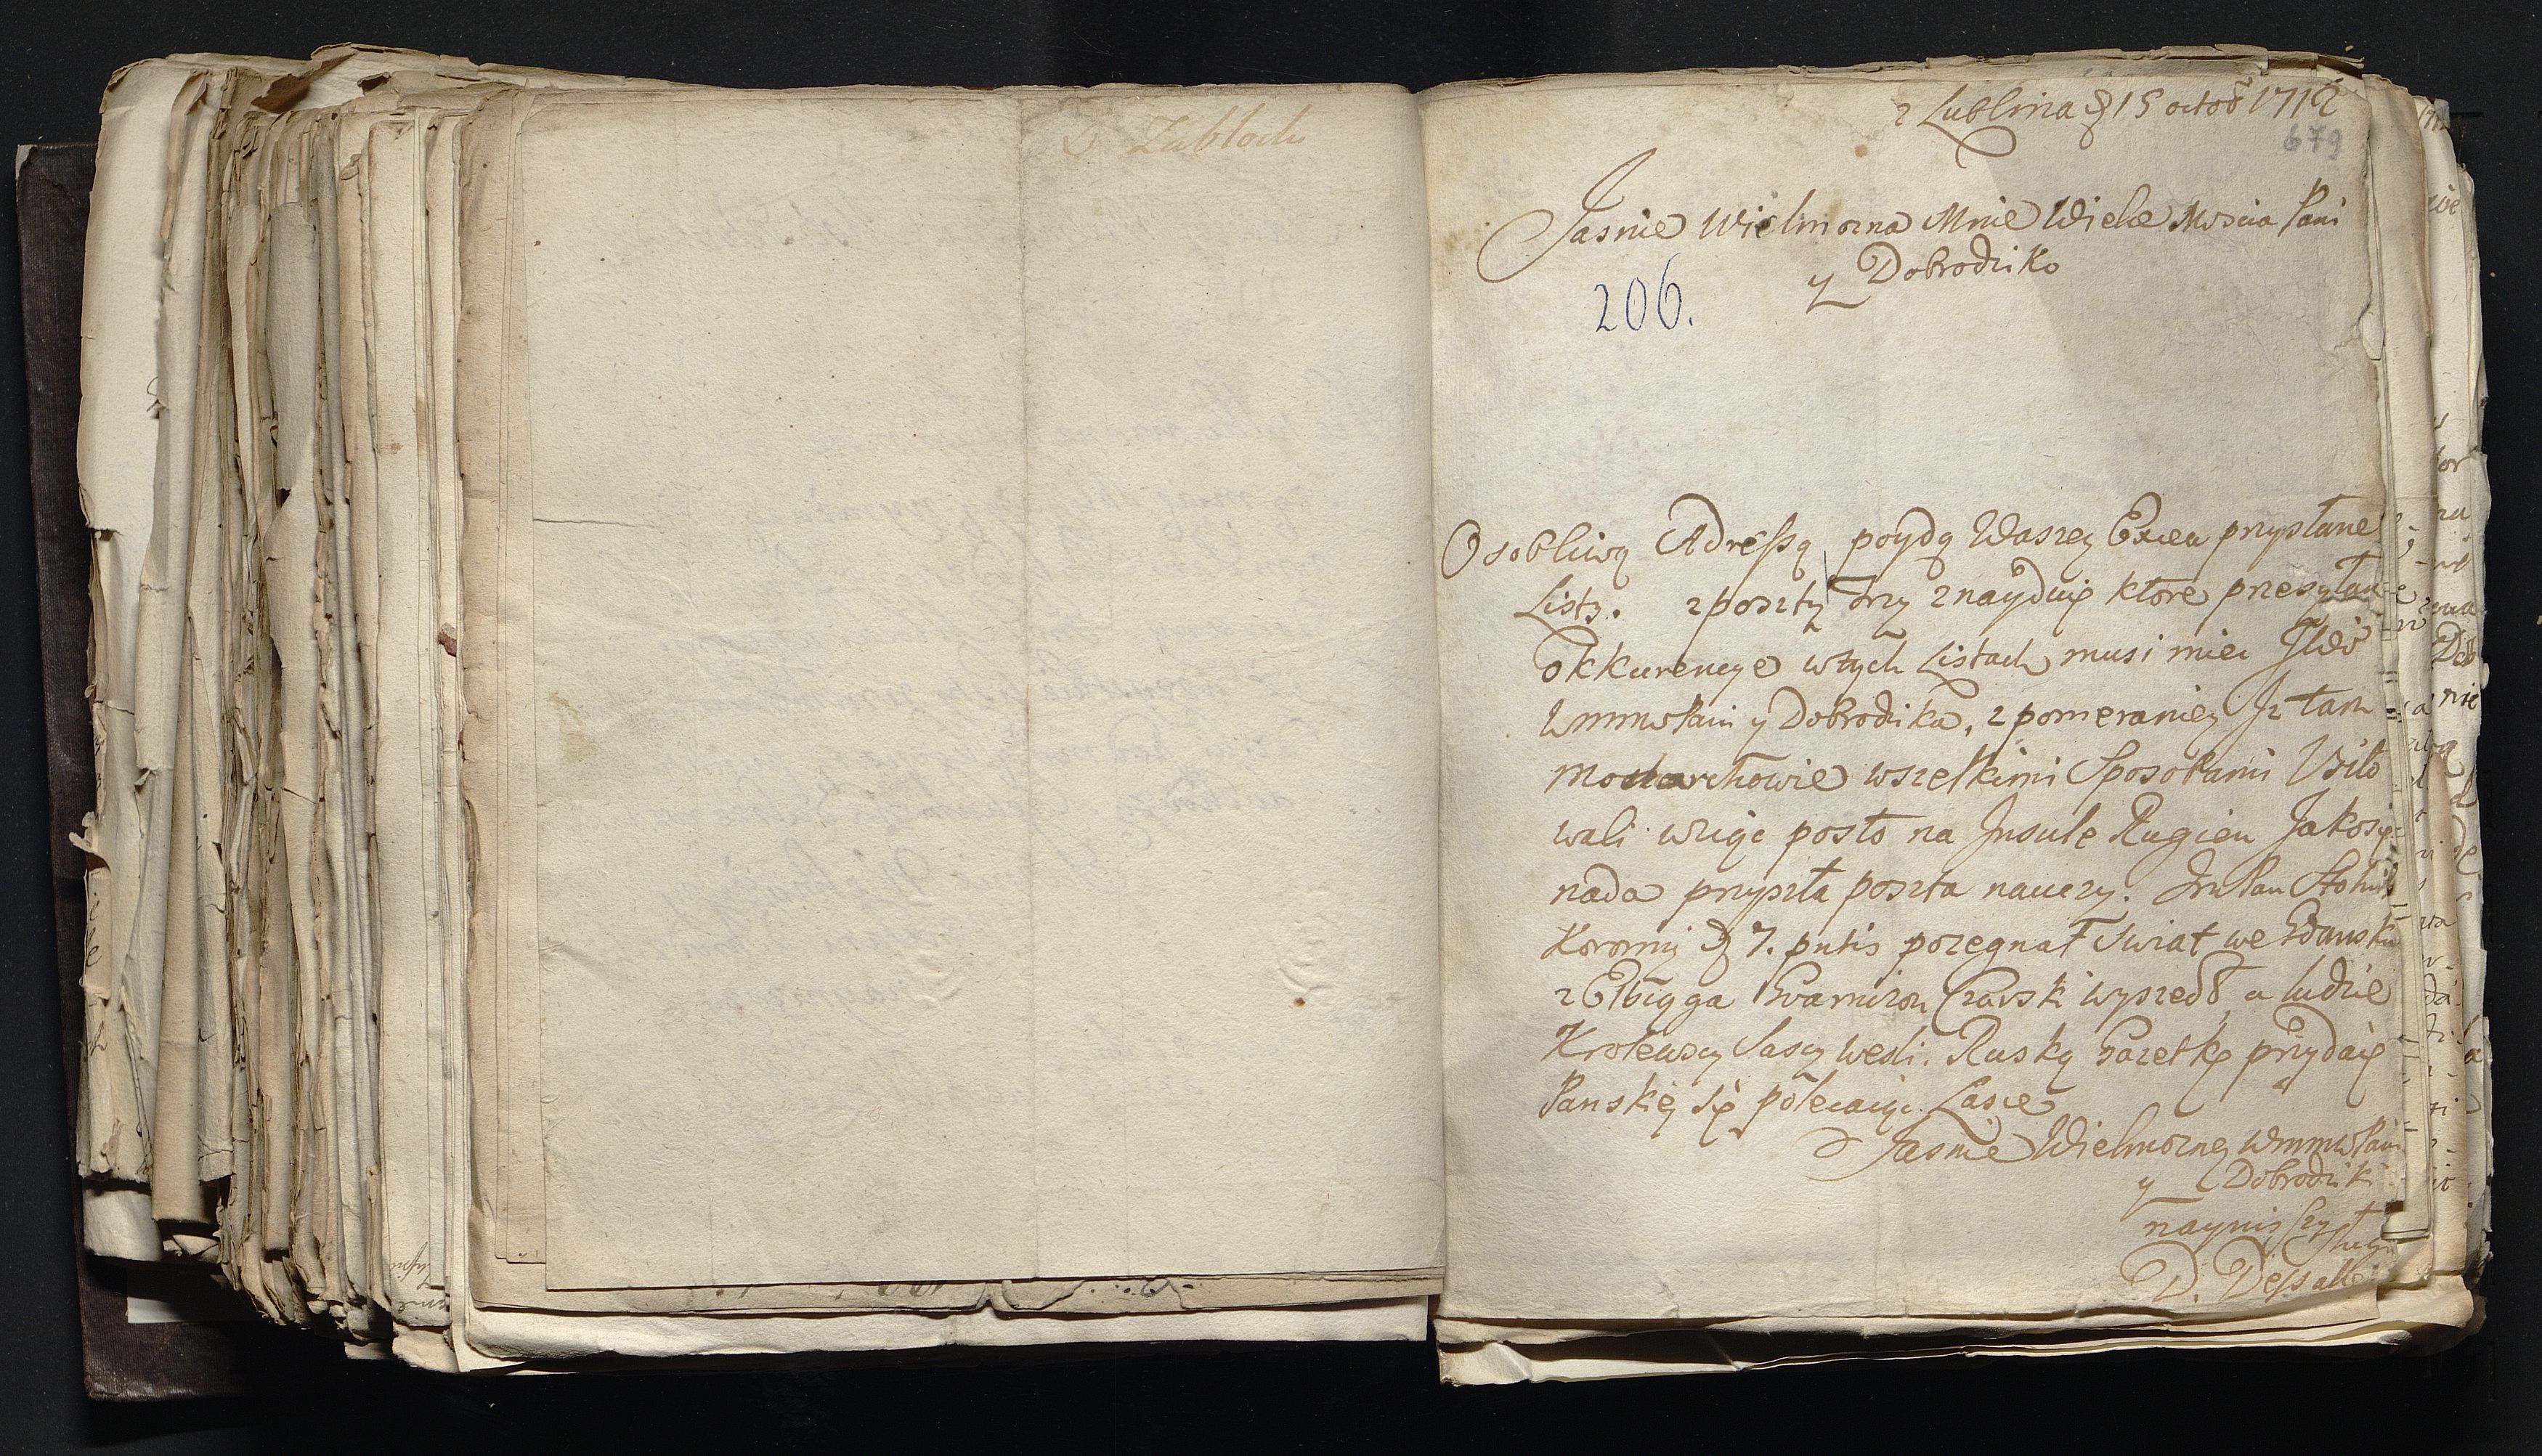 D. Zabłocki
z Lublina d 15 octob 1712
679
Jasnie Wielmozna Mnie Wielce Mscia Pani
y Dobrodziko
206.
Osobliwą Adressą poydą Waszey Excea przysłane
Listy. z poszty trzy znayduię ktore przesyłam
okkurencye w tych Listach musi miec JW
WmmPani y Dobrodzika, z pomeraniey Jz tam
Monarchowie wszelkimi Sposobami Vsiło
wali wziąc posto na Jnsule Rugien Jakosię
nada przyszła poszta nauczy. Jm Pan Stolnik
Koronny d 7. pntis pozegnał Swiat we Gdansku
z Elbiąga Gvarnizon Czarski wyszedł, a ludzie
Krolewscy Sascy weszli. Ruską gazetkę przydaię
Panskiey się polecaiąc Łasce
Jasnie Wielmozney WmmPani
y Dobrodziki
nayniszszy
sługa
D.